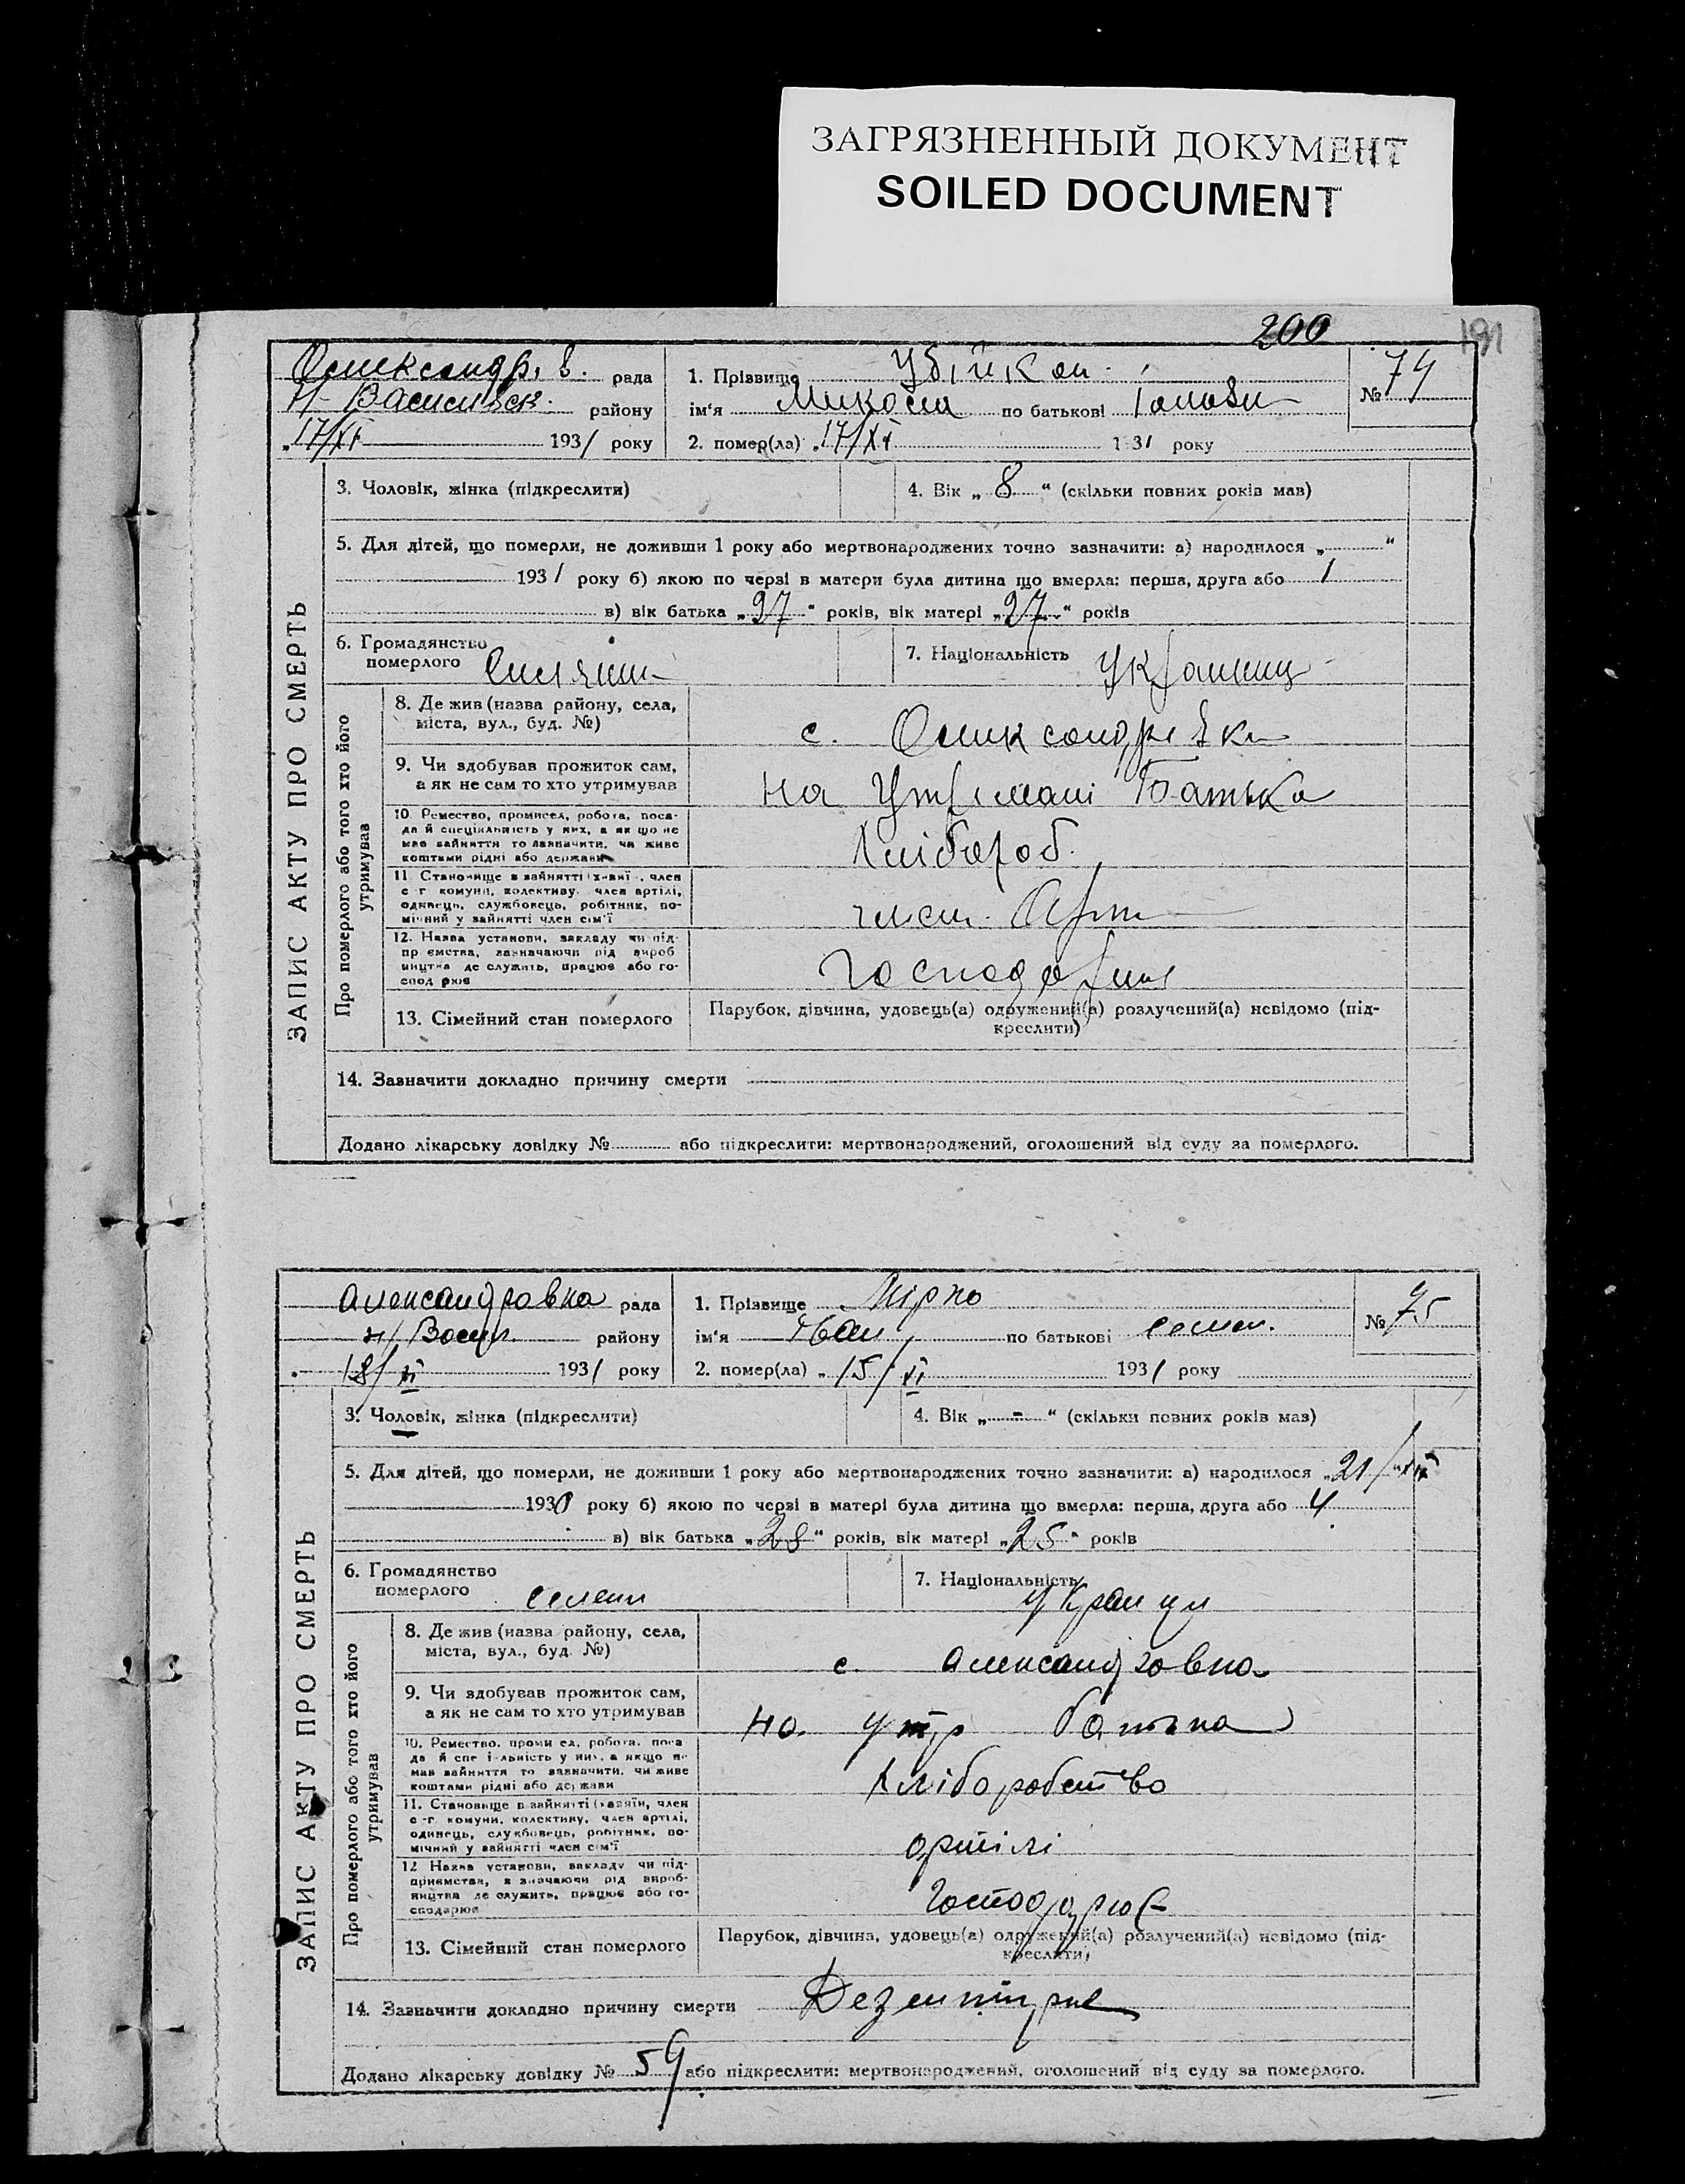 ЗАГРЯЗНЕННЫЙ ДОКУМЕНТ
SOILED DOCUMENT
200
191
Олександрів. рада
Н-Васильевск. району
„17/XI 1931 року
1. Прізвище
ім'я Микола по батькові
2. помер(ла) „17/XI 1931 року
№ 74
ЗАПИС АКТУ ПРО СМЕРТЬ
3. Чоловік, жінка (підкреслити)
4. Вік „8“ (скільки повних років мав)
5. Для дітей, що померли, не доживши 1 року або мертвонароджених точно зазначити: а) народилося „ “
1931 року б) якою по черзі в матери була дитина що вмерла: перша, друга або 1
в) вік батька „27“ років, вік матері „27“ років
6. Громадянство
померлого Силянин
7. Національність Украинец
Про померлого або того хто його
утримував
8. Де жив (назва району, села,
міста, вул., буд. №)
с. Олександрівка
9. Чи здобував прожиток сам,
а як не сам то хто утримував
на утримані Батька
10 Ремество, промисел, робота, поса-
да й спеціяльність у них, а як що не
мав зайняття то зазначити, чи живе
коштами рідні або держави
Хлібороб.
11 Становище в зайнятті (хазяїн, член
с г комуни, колективу, член артілі,
одинець, службовець, робітник, по-
мічний у зайнятті член сім'ї
член. Арт
12. Назва установи, закладу чи під-
приємства, зазначаючи рід вироб
ництва де служить, працює або го-
спод рює
13. Сімейний стан померлого
Парубок, дівчина, удовець(а) одружений(а) розлучений(а) невідомо (під-
креслити)
14. Зазначити докладно причину смерти
Додано лікарську довідку № або підкреслити: мертвонароджений, оголошений від суду за померлого.
Александровка рада
н/Васил. району
18/XI 1931 року
1. Прізвище Мірко
ім'я Иван по батькові семен.
2. помер(ла) „15/XI 1931 року
№ 75
ЗАПИС АКТУ ПРО СМЕРТЬ
3. Чоловік, жінка (підкреслити)
4. Вік „-“ (скільки повних років мав)
5. Для дітей, що померли, не доживши 1 року або мертвонароджених точно зазначити: а) народилося „21/XII
1930 року б) якою по черзі в матері була дитина що вмерла: перша, друга або 4
в) вік батька „28“ років, вік матері „25“ років
6. Громадянство
померлого селян
7. Національність
Про померлого або того хто його
утримував
8. Де жив (назва району, села,
міста, вул., буд. №)
с. Александровка
9. Чи здобував прожиток сам,
а як не сам то хто утримував
на утр батька
10. Ремество, промисел, робота, поса
да й спеціяльність у них, а якщо не
мав зайняття то зазначити, чи живе
коштами рідні або держави
хліборобство
11. Становище в зайнятті (хазяїн, член
с-г. комуни, колективу, член артілі,
одинець, службовець, робітник, по-
мічний у зайнятті член сім'ї
артілі
12 Назва установи, закладу чи під-
приємства, зазначаючи рід вироб-
ництва де служить, працює або го-
сподарює
господарює
13. Сімейний стан померлого
Парубок, дівчина, удовець(а) одружений(а) розлучений(а) невідомо (під-
креслити)
14. Зазначити докладно причину смерти Дезентирие
Додано лікарську довідку № 59 або підкреслити: мертвонароджений, оголошений від суду за померлого.